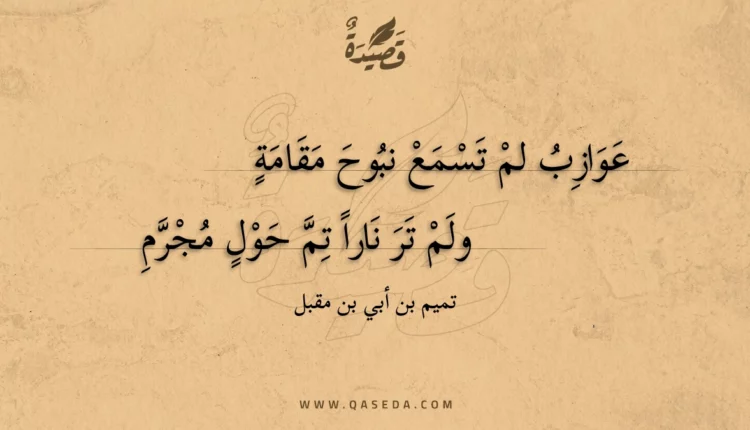 قَصِيْدَةٌ
عَوَازِبُ لمْ تَسْمَعْ نبُوحَ مَقَامَةٍ
ولَمْ تَرَ نَاراً تِمَّ حَوْلٍ مُجْرَّمِ
تميم بن أبي بن مقبل
WWW.QASEDA.COM